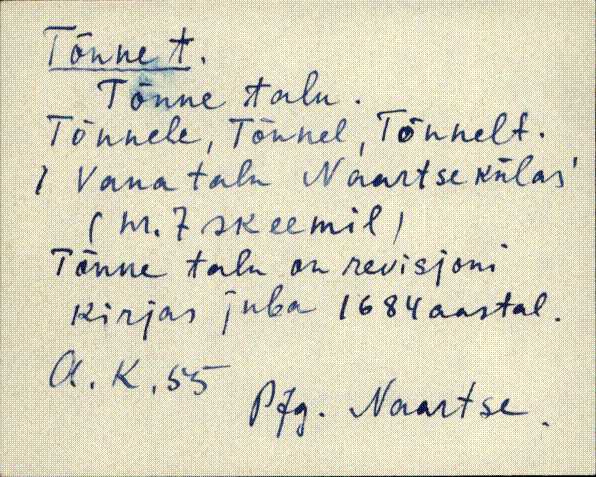 Tõnne t.
Tõnne talu.
Tõnnele, Tõnnel, Tõnnelt.
) Vana talu Naartse külas'
(nr. 7 skeemil)
Tõnne talu on revisjoni
kirjas juba 1684 aastal.
A.K. 55
Pfg. Naartse.